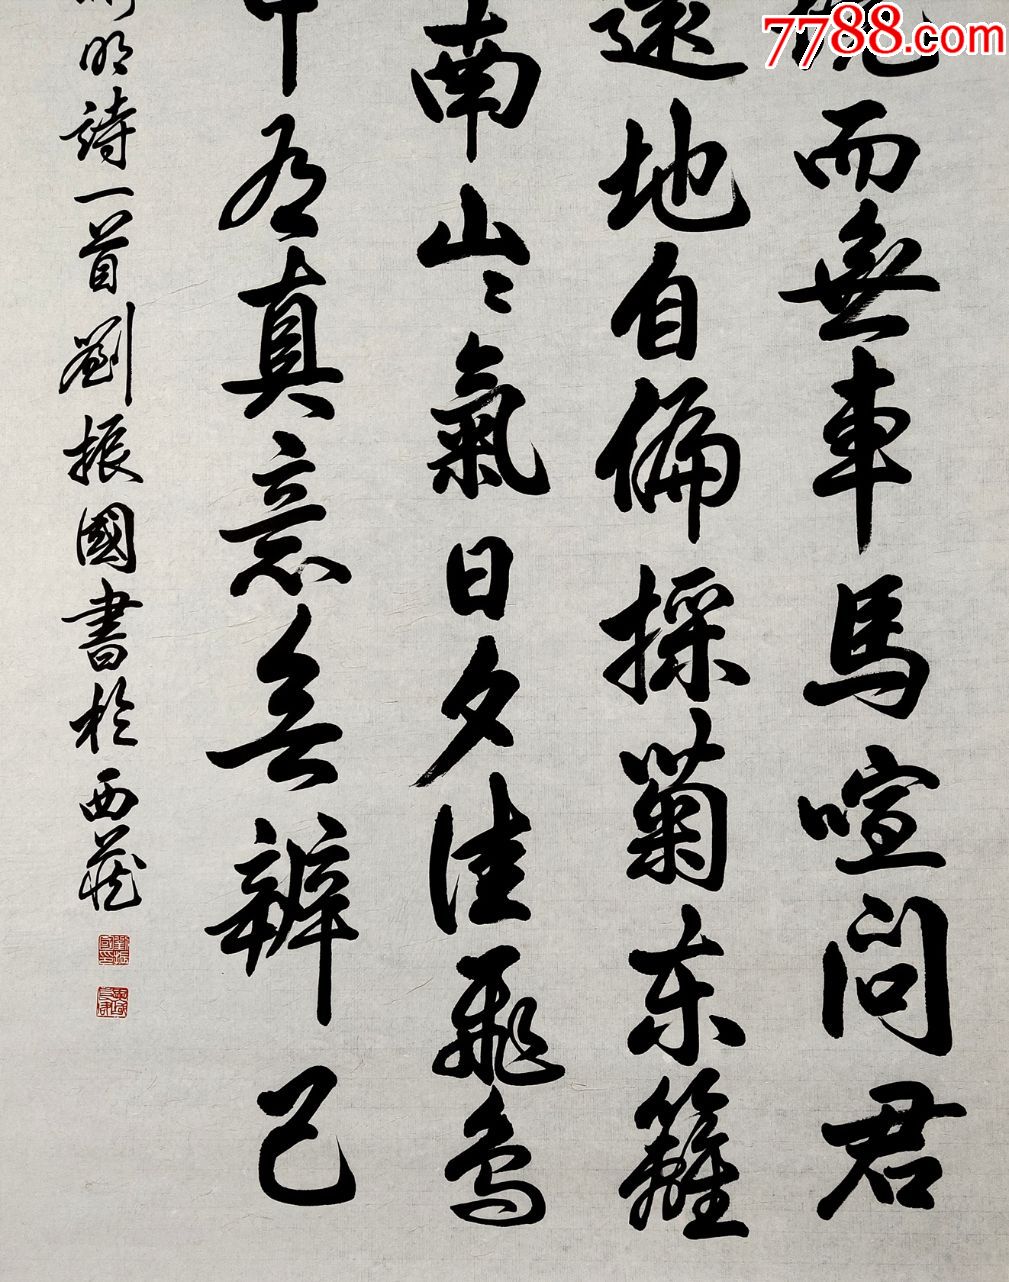 7788.com
而無車馬喧問君
遠地自偏採菊东籬
南山々氣日夕佳飛鳥
中有真意無辨已
明詩一首劉振國書於西藏